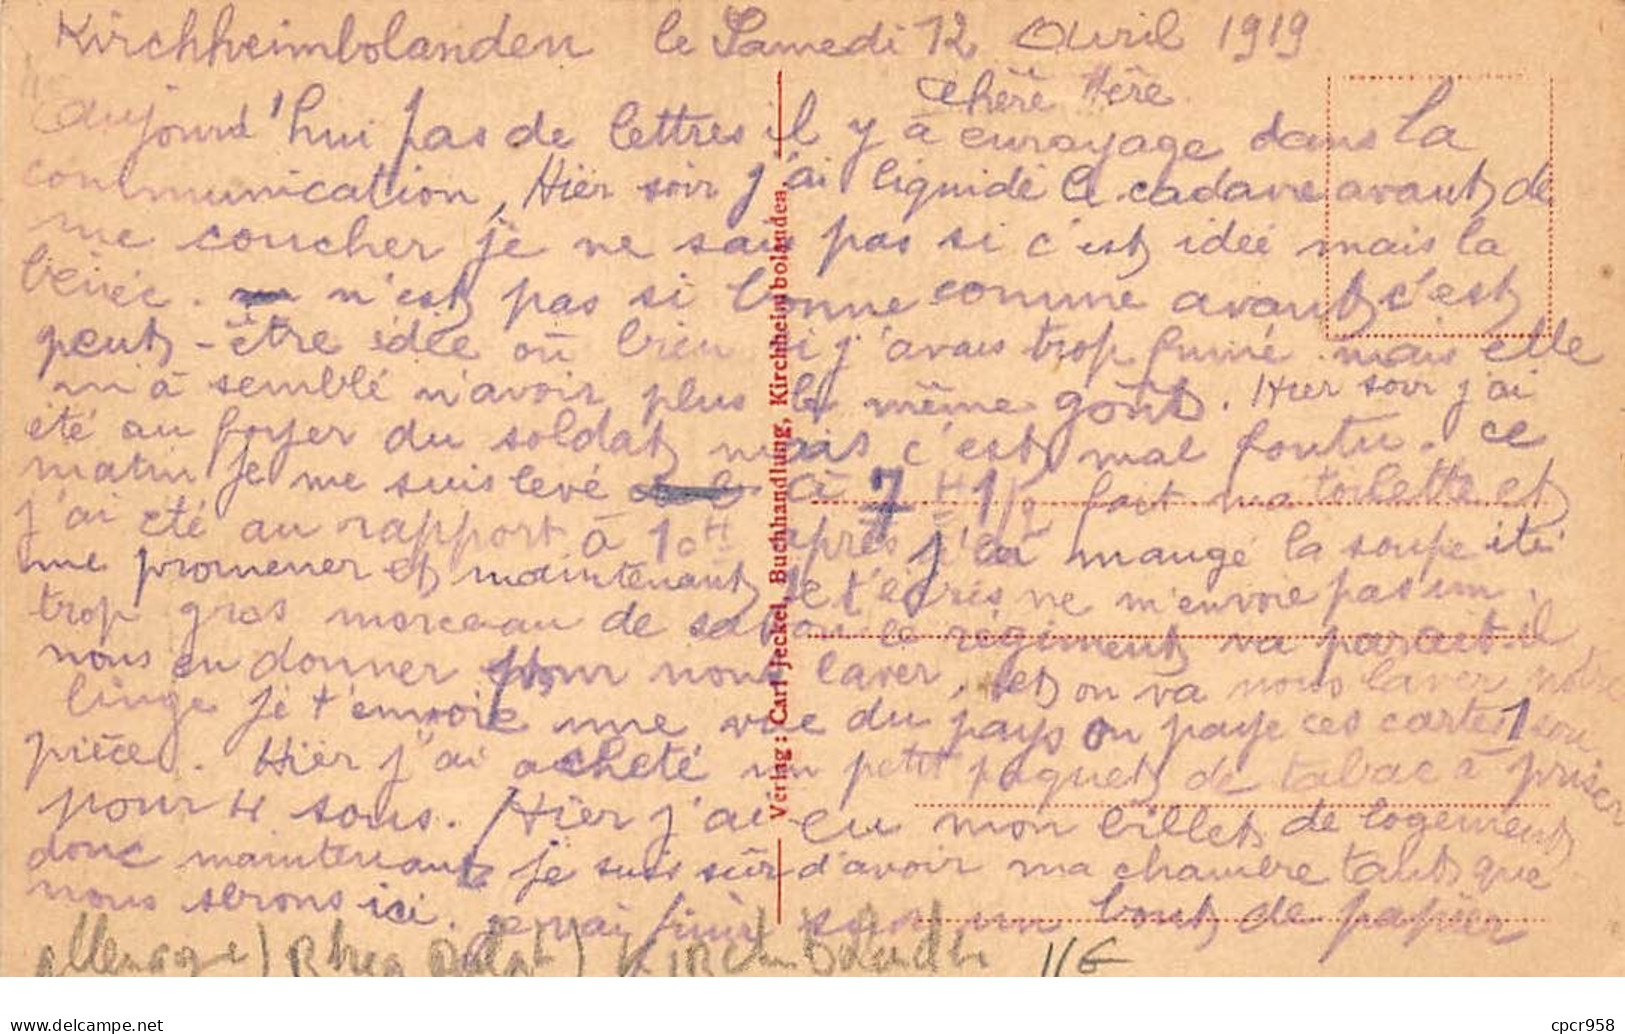 Kirchheimbolanden le Samedi 12 Avril 1919
Chère Mère
Aujourd'hui pas de lettres il y a enrayage dans la
communication, Hier soir j'ai liquidé le cadavre avant de
me coucher je ne sais pas si c'est idée mais la
n'est pas si bonne comme avant c'est
peut-être idée où bien si j'avais trop fumé mais elle
m'à semblé n'avoir plus le même goût. Hier soir j'ai
été au foyer du soldat mais c'est mal foutu. ce
matin je me suis levé à 7 H 1/2 fait ma toilette et
j'ai été au rapport à 10H après j'ai mangé la soupe été
me promener et maintenant je t'écris ne m'envoie pas un
trop gros morceau de savon le régiment va parait-il
nous en donner pour nous laver, et on va nous laver notre
linge je t'envoie une vue du pays on paye ces cartes 1 sou
pièce. Hier j'ai acheté un petit paquet de tabac à priser
pour 4 sous. Hier j'ai eu mon billet de logement
donc maintenant je suis sûr d'avoir ma chambre tant que
nous serons ici. je vai finir sur un bout de papier
allemagne) Rhen Palat) Kirchimbolanden 11€
Verlag: Carl Jeckel, Buchhandlung, Kirchheimbolanden.
https://www.delcampe.net
cpcr958